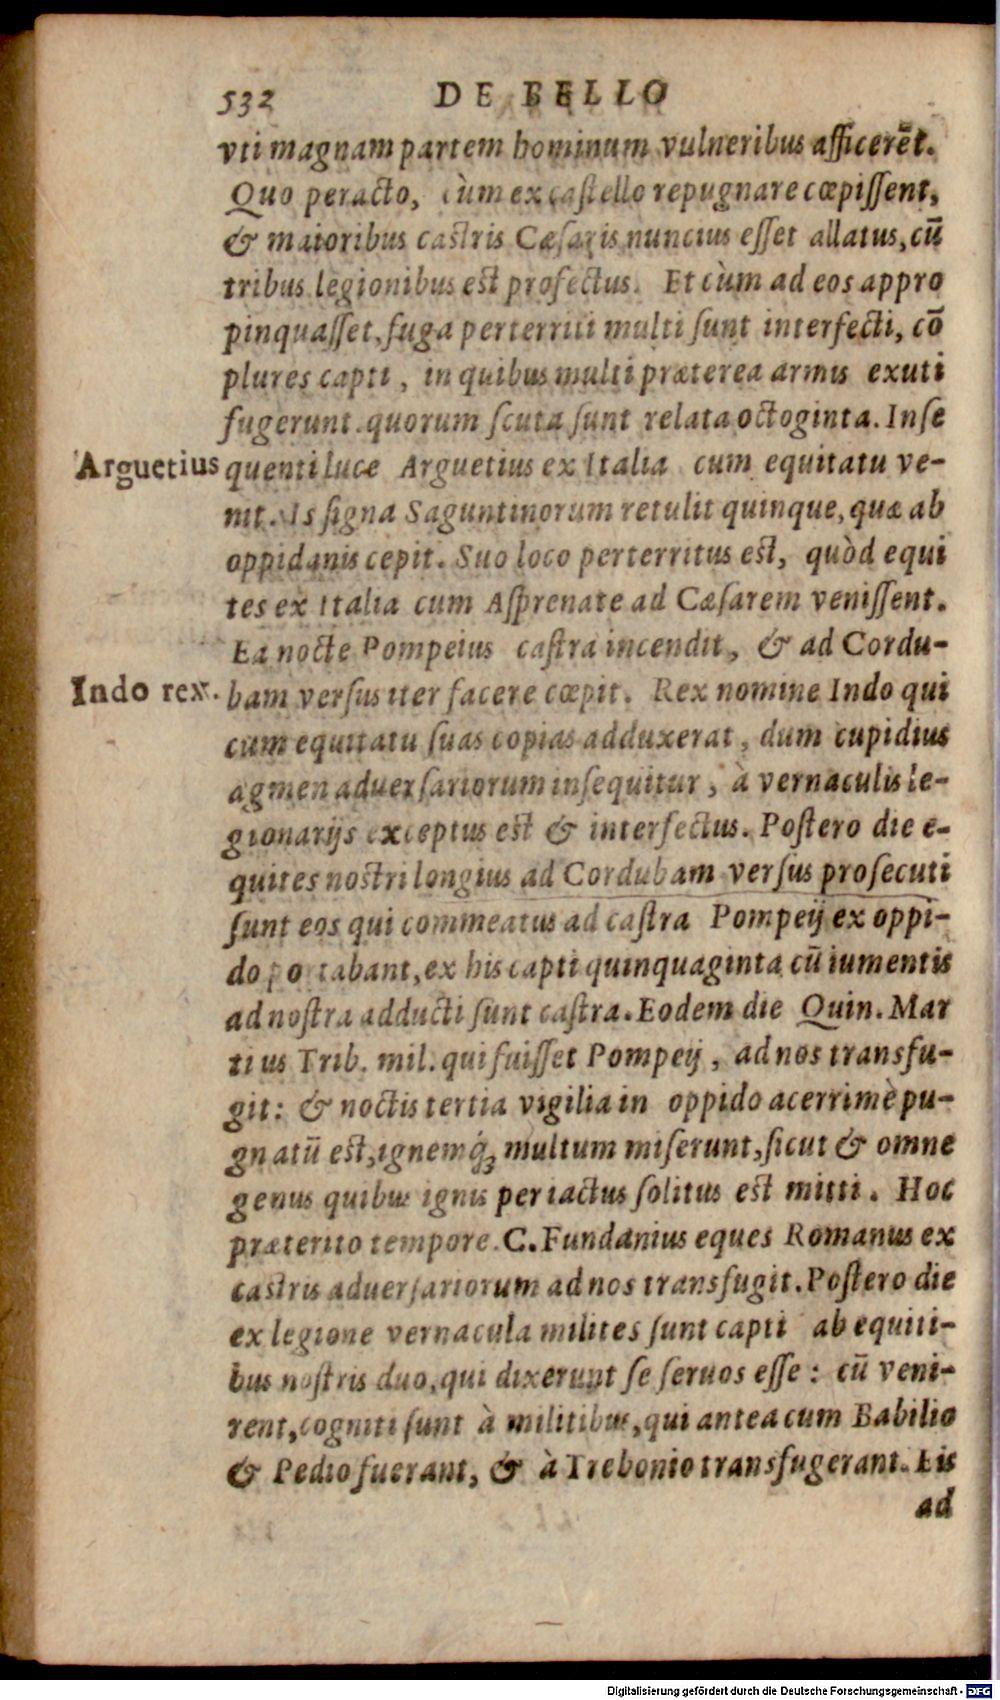 532 DE BELLO
vti magnam partem hominum vulneribus afficerēt.
Quo peracto, cùm ex castello repugnare cœpissent,
& maioribus castris Cæsaris nuncius esset allatus, cū
tribus legionibus est profectus. Et cùm ad eos appro
pinquasset, fuga perterriti multi sunt interfecti, cō
plures capti, in quibus multi præterea armis exuti
fugerunt. quorum scuta sunt relata octoginta. Inse
Arguetius quenti luce Arguetius ex Italia cum equitatu ve-
nit. Is signa Saguntinorum retulit quinque, quæ ab
oppidanis cepit. Suo loco perterritus est, quòd equi
tes ex Italia cum Asprenate ad Cæsarem venissent.
Ea nocte Pompeius castra incendit, & ad Cordu-
Indo rex. bam versus iter facere cœpit. Rex nomine Indo qui
cum equitatu suas copias adduxerat, dum cupidius
agmen aduersariorum insequitur, à vernaculis le-
gionarijs exceptus est & interfectus. Postero die e-
quites nostri longius ad Cordubam versus prosecuti
sunt eos qui commeatus ad castra Pompeij ex oppi-
do portabant, ex his capti quinquaginta cū iumentis
ad nostra adducti sunt castra. Eodem die Quin. Mar
tius Trib. mil. qui fuisset Pompeij, ad nos transfu-
git: & noctis tertia vigilia in oppido acerrimè pu-
gnatū est, ignemq́; multum miserunt, sicut & omne
genus quibus ignis per iactus solitus est mitti. Hoc
præterito tempore. C. Fundanius eques Romanus ex
castris aduersariorum ad nos transfugit. Postero die
ex legione vernacula milites sunt capti ab equiti-
bus nostris duo, qui dixerunt se seruos esse: cū veni-
rent, cogniti sunt à militibus, qui antea cum Babilio
& Pedio fuerant, & à Trebonio transfugerant. Eis
ad
Digitalisierung gefördert durch die Deutsche Forschungsgemeinschaft - DFG